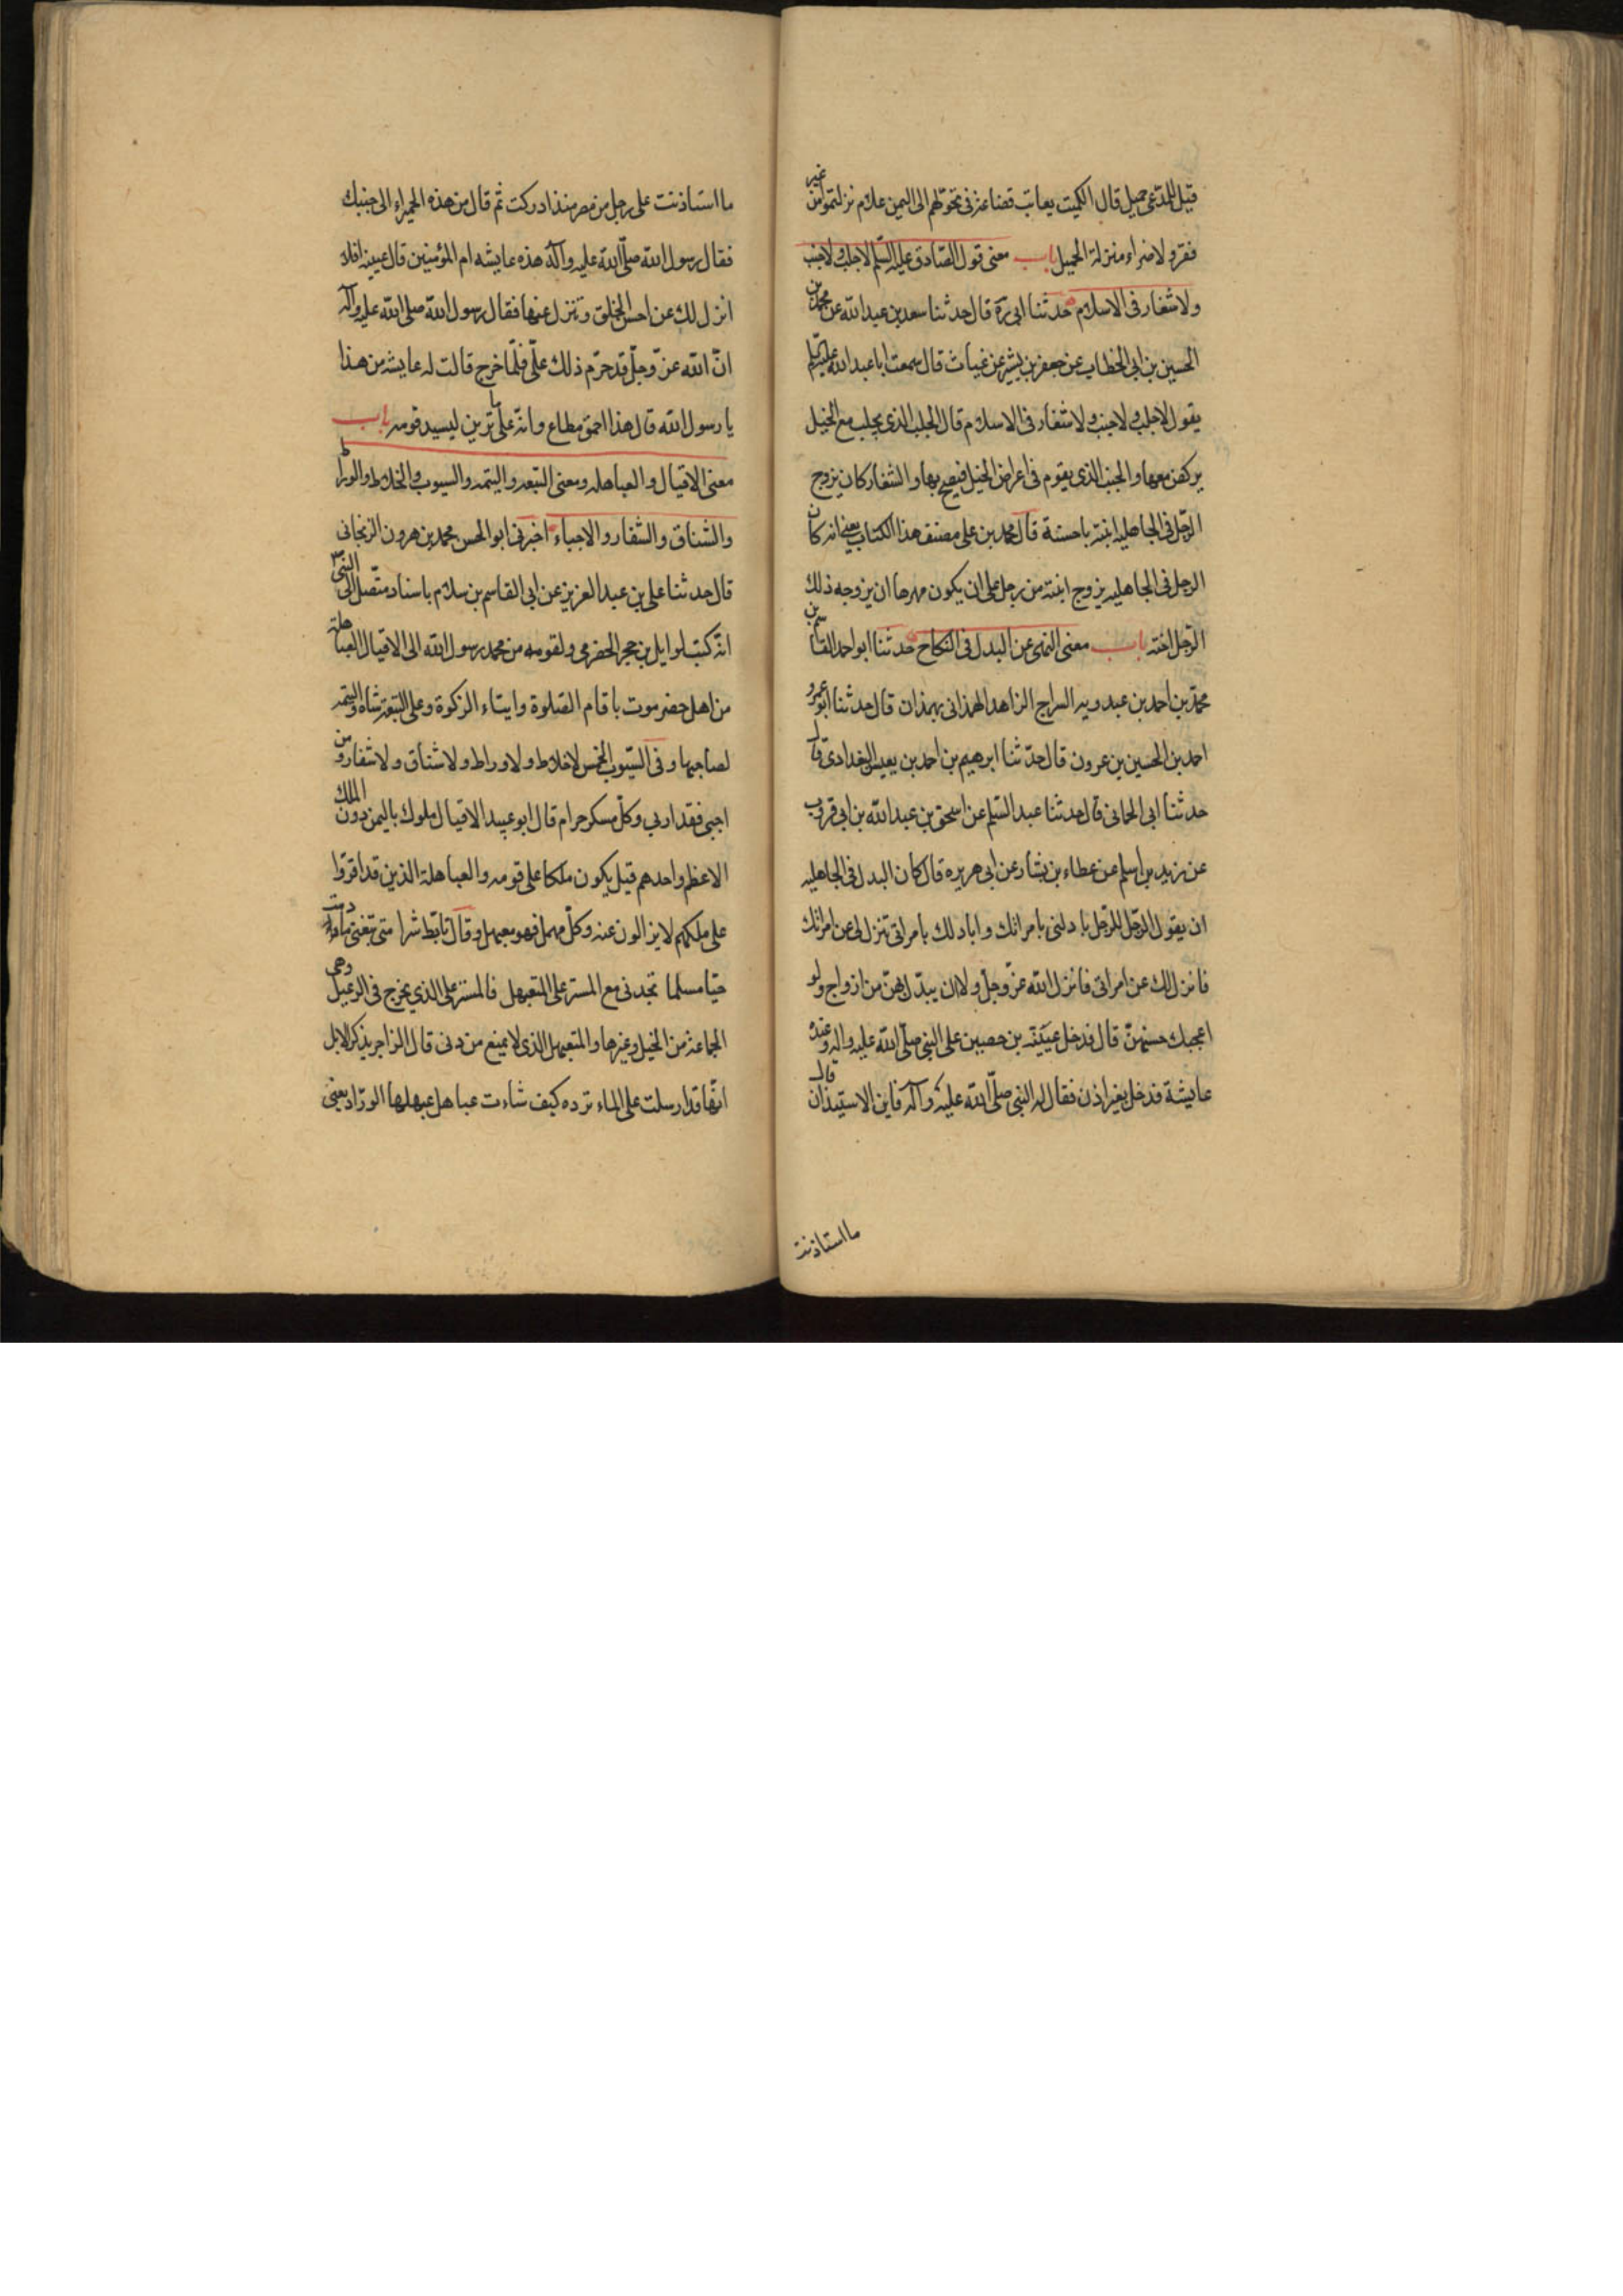 قيل للمدّعى حميل قال الكميت يعاتب قضاعة فى تحولهم الى اليمن علام نزلتموا من غير
فقر ولا ضراء منزلة الحميل باب معنى قول الصّادق عليه السّلم لا جلب ولا جنب
ولا شغار فى الاسلام حدثنا ابى ره قال حدثنا سعد بن عبد الله عن محمد بن
الحسين بن ابى الخطاب عن جعفر بن بشير عن غياث قال سمعت ابا عبد الله عليه السلم
يقول لا جلب ولا جنب ولا شغار فى الاسلام قال الجلب الذى يجلب مع الخيل
يركض معها والجنب الذى يقوم فى اعراض الخيل فيصيح بها والشغار كان يزوج
الرّجل فى الجاهليه ابنته باخته قال محمد بن على مصنف هذا الكتاب يعنى انه كان
الرجل فى الجاهليه يزوج ابنته من رجل على ان يكون مهرها ان يزوجه ذلك
الرّجل اخته باب معنى النهى عن البدل فى النكاح حدثنا ابو احمد القاسم بن
محمد بن احمد بن عبدويه السراج الزاهد الهمذانى بهمذان قال حدثنا ابو عمرو
احمد بن الحسين بن عرون قال حدّثنا ابرهيم بن احمد بن يعيس البغدادى قال
حدثنا ابى الحمانى قال حدثنا عبد السّلم عن اسحق بن عبد الله بن ابى قروب
عن زيد بن اسلم عن عطاء بن يشار عن ابى هريره قال كان البدل فى الجاهليه
ان يقول الرّجل للرّجل بادلنى بامراتك وابادلك بامراتى تنزل لى عن امراتك
فانزل لك عن امراتى فانزل الله عزّ وجلّ ولا ان يبدّل بهنّ من ازواج ولو
اعجبك حسنهنّ قال فدخل عيينة بن حصين على النبى صلّى الله عليه واله وعنده
عايشة فدخل بغير اذن فقال له النبى صلّى الله عليه وآله فاين الاستيذان قال
ما استاذنت
ما استاذنت على رجل من مضر منذ ادركت ثم قال من هذه الحميراء الى جنبك
فقال رسول الله صلّى الله عليه وآله هذه عايشه ام المؤمنين قال عيينه افلا
انزل لك عن احسن الخلق وتنزل عنها فقال رسول الله صلى الله عليه وآله
انّ الله عزّ وجلّ قد حرّم ذلك علىّ فلمّا خرج قالت له عايشه من هذا
يا رسول الله قال هذا احمق مطاع وانّه على ما ترين ليسيد قومه باب
معنى الاقيال والعباهله ومعنى التيعه والتيمه والسيوب والخلاط والوراط
والشناق والشغار والاجباء اخبرنى ابو الحسن محمد بن هرون الزنجانى
قال حدثنا على بن عبد العزيز عن ابى القاسم بن سلام باسناد متّصل الى النبى
انّه كتب لوايل بن حجر الحضرمى ولقومه من محمد رسول الله الى الاقيال العباهلة
من اهل حضرموت باقام الصّلوة وايتاء الزكوة وعلى التيعة شاه والتيمه
لصاحبها وفى السّيوب الخمس لا خلاط ولا وراط ولا شناق ولا شغار ومن
اجبى فقد اربى وكلّ مسكر حرام قال ابو عبيد الاقيال ملوك باليمن دون الملك
الاعظم واحدهم قيل يكون ملكا على قومه والعباهلة الذين قد اقرّوا
على ملكهم لا يزالون عنه وكلّ مهمل فهو معبهل وقال تابّط شرا متى تبغنى ما دمت
حيّا مسلما تجدنى مع المسترعل المتعبهل فالمسترعل الذى يخرج فى الرعيل وهى
الجماعة من الخيل وغيرها والمتعبهل الذى لا يمنع من دنى قال الزاجر يذكر الابل
انّها قد ارسلت على الماء ترده كيف شاءت عباهل عبهلها الورّاد يعنى